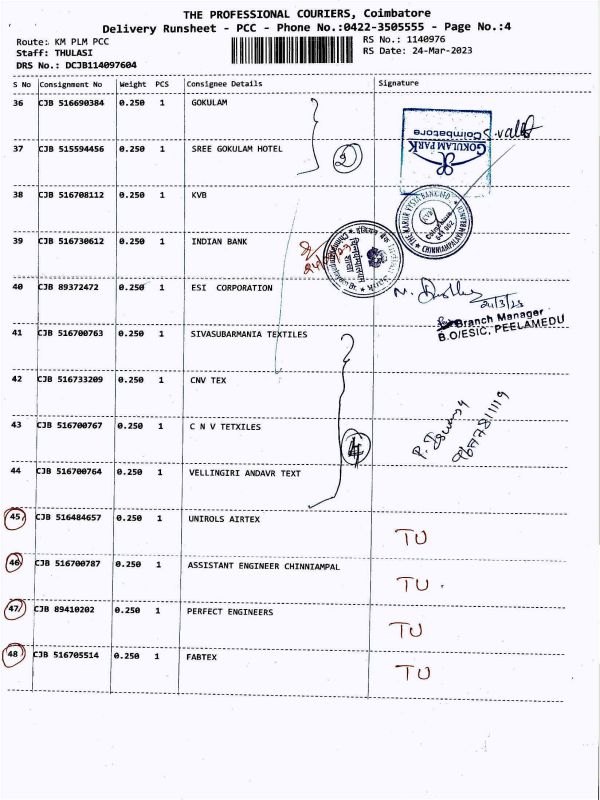 THE PROFESSIONAL COURIERS, Coimbatore
Delivery Runsheet - PCC - Phone No.:0422-3505555 - Page No.:4
Route: KM PLM PCC
RS No.: 1140976
Staff: THULASI
RS Date: 24-Mar-2023
DRS No.: DCJB114097604
S No Consignment No Weight PCS Consignee Details Signature
36 CJB 516690384 0.250 1 GOKULAM
GOKULAM PARK
Coimbatore
37 CJB 515594456 0.250 1 SREE GOKULAM HOTEL
2
38 CJB 516708112 0.250 1 KVB
THE KARUR VYSYA BANK LTD.
39 CJB 516730612 0.250 1 INDIAN BANK
40 CJB 89372472 0.250 1 ESI CORPORATION
24/3/23
Branch Manager
B.O/ESIC, PEELAMEDU
41 CJB 516700763 0.250 1 SIVASUBARMANIA TEXTILES
42 CJB 516733209 0.250 1 CNV TEX
43 CJB 516700767 0.250 1 C N V TETXILES
4
44 CJB 516700764 0.250 1 VELLINGIRI ANDAVR TEXT
45 CJB 516484657 0.250 1 UNIROLS AIRTEX
TU
46 CJB 516700787 0.250 1 ASSISTANT ENGINEER CHINNIAMPAL
TU
47 CJB 89410202 0.250 1 PERFECT ENGINEERS
TU
48 CJB 516705514 0.250 1 FABTEX
TU